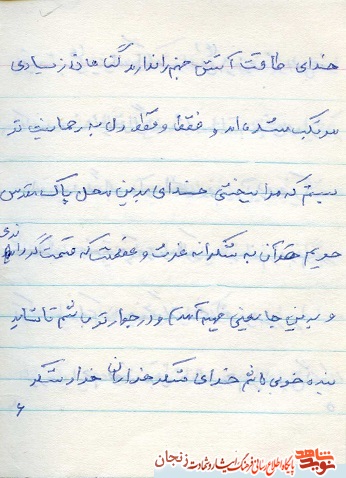 خدای طاقت آتش جهنم را ندارم گناهان زیادی
مرتکب شده‌ام و فقط و فقط دل به رحمانیت تو
بستم که مرا ببخشی خدای بدین محل پاک مقدس
ندی
حریم قرآن به شکرانه عزت و عظمت که قسمت گردا
و بدین جا یعنی آمدم و در جوار تو باشم تا شاید
بنده خوبی باشم خدای شکر هزاران هزار شکر
۶
نوید شاهد
پایگاه اطلاع رسانی فرهنگ ایثار و شهادت زنجان